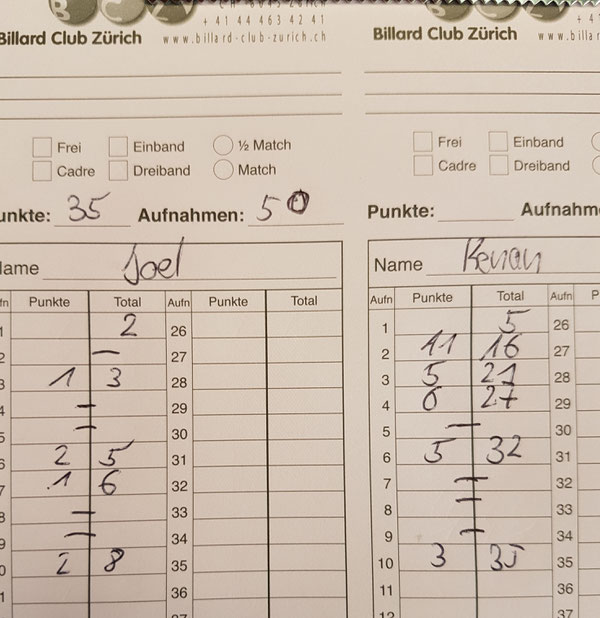 + 41 44 463 42 41
Billard Club Zürich www.billard-club-zurich.ch
Frei Einband ½ Match
Cadre Dreiband Match
Punkte: 35 Aufnahmen: 50
Name Joel
Aufn Punkte Total Aufn Punkte Total
1 2 26
2 — 27
3 1 3 28
4 — 29
5 — 30
6 2 5 31
7 1 6 32
8 — 33
9 — 34
10 2 8 35
36
Billard Club Zürich
Frei Einband
Cadre Dreiband
Punkte: Aufnahm
Name Kenan
Aufn Punkte Total Aufn P
1 5 26
2 11 16 27
3 5 21 28
4 6 27 29
5 — 30
6 5 32 31
7 — 32
8 — 33
9 — 34
10 3 35 35
11 36
12 37